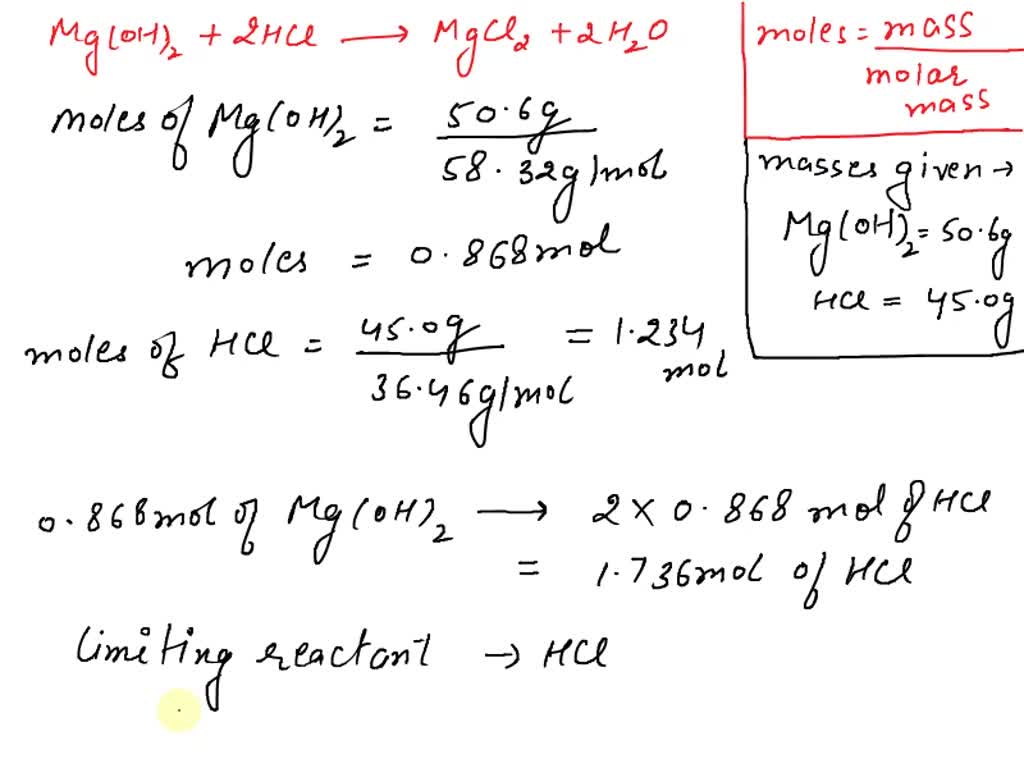 Mg(OH)₂ + 2HCl ⟶ MgCl₂ + 2H₂O
moles of Mg(OH)₂ = 50.6g / 58.32g/mol
moles = 0.868mol
moles of HCl = 45.0g / 36.46g/mol = 1.234 mol
0.868mol of Mg(OH)₂ ⟶ 2 × 0.868 mol of HCl
= 1.736mol of HCl
limiting reactant → HCl
moles = mass / molar mass
masses given →
Mg(OH)₂ = 50.6g
HCl = 45.0g